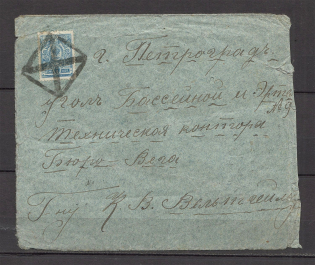 г. Петроградъ
уголъ Бассейной и Эрт
№9
Техническая контора
Бюро Вега
Г-ну К. В. Вельтгейм